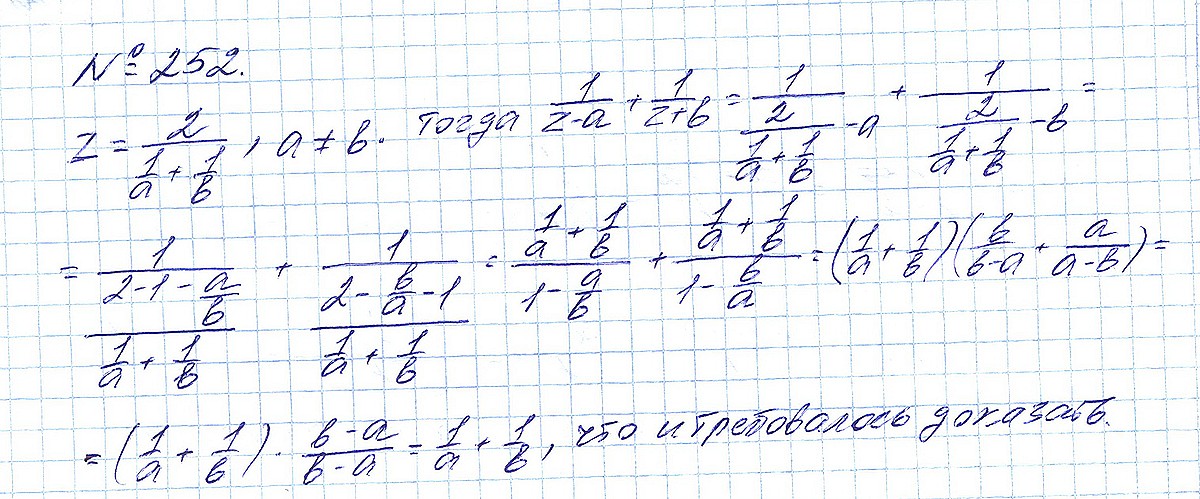 № 252.
z = 2/(1/a + 1/b), a ≠ b. тогда 1/(z-a) + 1/(z+b) = 1/(2/(1/a + 1/b) - a) + 1/(2/(1/a + 1/b) - b) =
= 1/((2-1-a/b)/(1/a + 1/b)) + 1/((2-b/a-1)/(1/a + 1/b)) = (1/a + 1/b)/(1-a/b) + (1/a + 1/b)/(1-b/a) = (1/a + 1/b)(b/(b-a) + a/(a-b)) =
= (1/a + 1/b) · (b-a)/(b-a) = 1/a + 1/b, что и требовалось доказать.